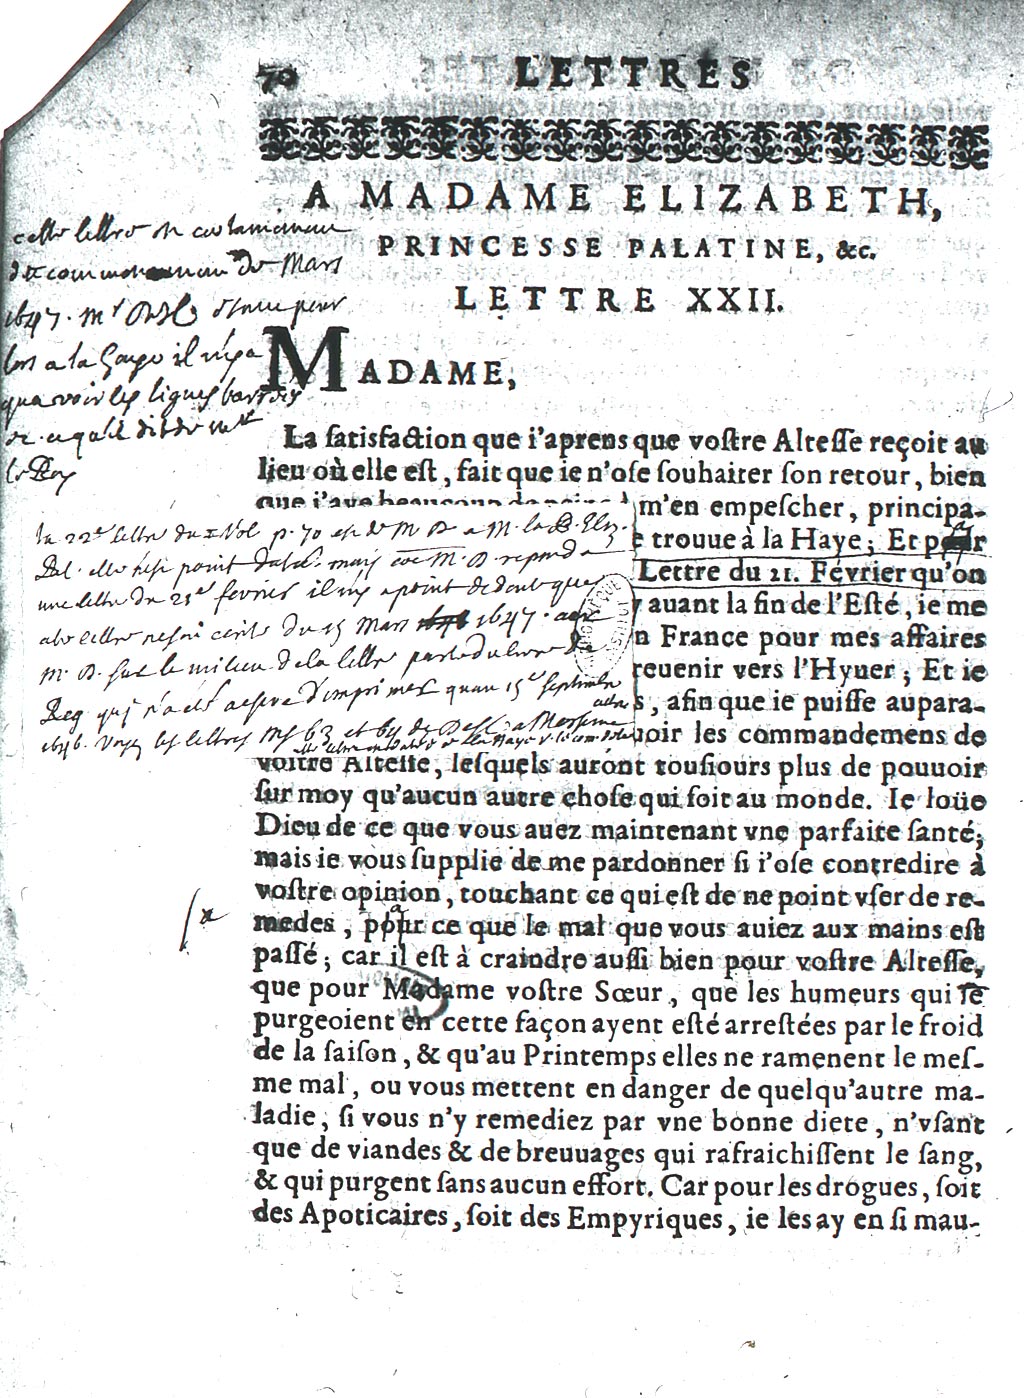 70 LETTRES
A MADAME ELIZABETH,
PRINCESSE PALATINE, &c.
LETTRE XXII.
cette lettre est certainement
du commencement de Mars
1647. Mr Desc
lors a la Haye il n'y a
qu'a voir les lignes barrées
et ce qu'il dit de Mr
le Roy
MADAME,
La ſatisfaction que i'aprens que voſtre Alteſſe reçoit au
lieu où elle eſt, fait que ie n'oſe ſouhaiter ſon retour, bien
que i'aye beaucoup de peine à m'en empeſcher, principa-
trouue à la Haye; Et par
Lettre du 21. Février qu'on
auant la fin de l'Eſté, ie me
n France pour mes affaires
reuenir vers l'Hyuer; Et ie
s, afin que ie puiſſe aupara-
uoir les commandemens de
la 22e lettre du I Vol p. 70 est de M D a M. la P. Eliz.
Pal. elle n'est point datée. mais comme M. D repond a
une lettre du 21e fevrier il n'y a point de doute que
cette lettre ne soit ecrite du 15 Mars 1647. car
M. D. sur le milieu de la lettre parle du livre de
Reg qui n'a esté acheve d'imprimer qu'au 15e septembre
1646. Voyez les lettres MS 63 et 64 de Desc. a Mersenne
voſtre Alteſſe, leſquels auront touſiours plus de pouuoir
ſur moy qu'aucun autre choſe qui ſoit au monde. Ie loüe
Dieu de ce que vous auez maintenant vne parfaite ſanté;
mais ie vous ſupplie de me pardonner ſi i'oſe contredire à
voſtre opinion, touchant ce qui eſt de ne point vſer de re-
medes, par ce que le mal que vous auiez aux mains eſt
paſſé; car il eſt à craindre auſſi bien pour voſtre Alteſſe,
que pour Madame voſtre Sœur, que les humeurs qui ſe
purgeoient en cette façon ayent eſté arreſtées par le froid
de la ſaiſon, & qu'au Printemps elles ne ramenent le meſ-
me mal, ou vous mettent en danger de quelqu'autre ma-
ladie, ſi vous n'y remediez par vne bonne diete, n'vſant
que de viandes & de breuuages qui rafraichiſſent le ſang,
& qui purgent ſans aucun effort. Car pour les drogues, ſoit
des Apoticaires, ſoit des Empyriques, ie les ay en ſi mau-